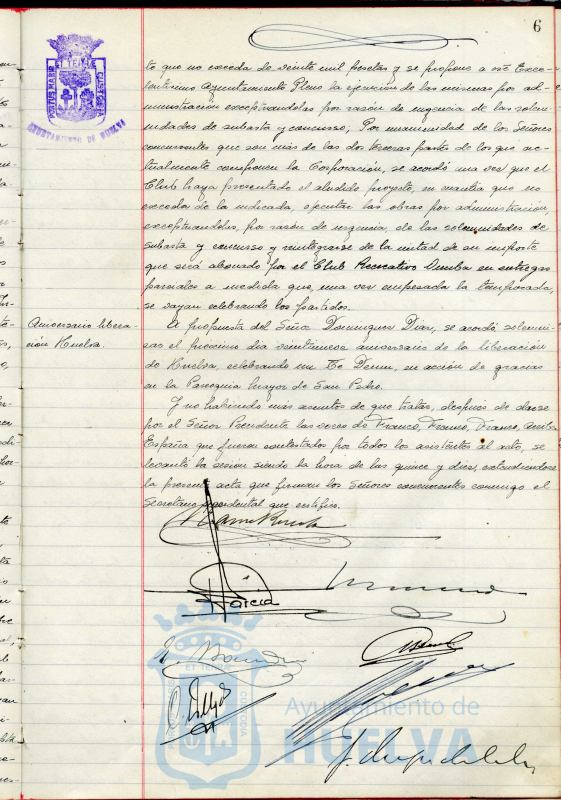 6
PORTUS MARIS ET TERRÆ CUSTODIA
AYUNTAMIENTO DE HUELVA
to que no exceda de veinte mil pesetas y se propone a ese Exce-
lentisimo Ayuntamiento Pleno la ejecucion de las mismas por ad-
ministración exceptuandolas por razón de urgencia de las solem-
nidades de subasta y concurso, Por unanimidad de los Señores
concurrentes que son mas de las dos terceras partes de los que ac-
tualmente componen la Corporación, se acordó una vez que el
Club haya presentado el aludido proyecto, en cuantia que no
exceda de la indicada, ejecutar las obras por administración,
exceptuandolas, por razón de urgencia, de las solemnidades de
subasta y concurso y reintegrarse de la mitad de su importe
que será abonado por el Club Recreativo Onuba en entregas
parciales a medida que, una vez empezada la temporada,
se vayan celebrando los partidos.
Aniversario libera-
ción Huelva.
A propuesta del Señor Dominguez Diaz, se acordó solemni-
zar el proximo dia veintinueve aniversario de la liberación
de Huelva, celebrando un Te Deum, en acción de gracias
en la Parroquia Mayor de San Pedro.
Y no habiendo más asuntos de que tratar, despues de darse
por el Señor Presidente las voces de Franco, Franco, Franco, Arriba
España que fueron contestados por todos los asistentes al acto, se
levantó la sesion siendo la hora de las quince y diez, extendiendose
la presente acta que firman los Señores concurrentes conmigo el
Secretario accidental que certifico.
Garcia
Ayuntamiento de
HUELVA